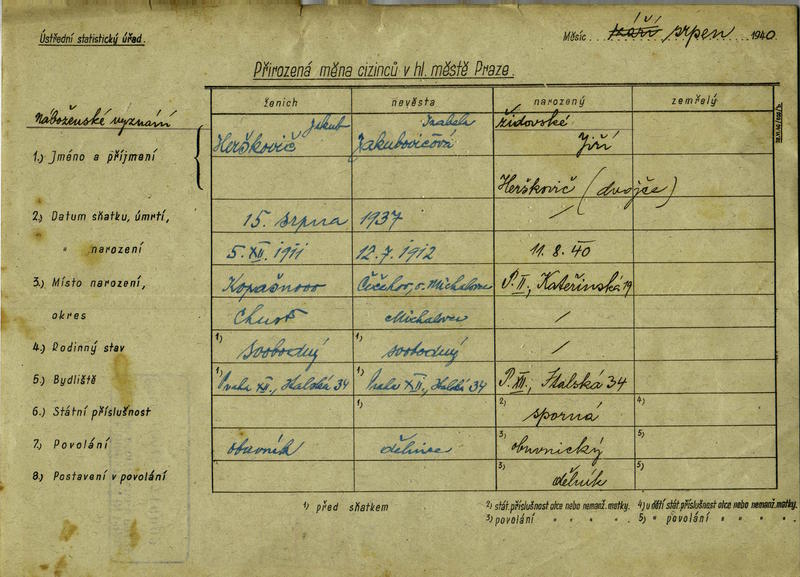 Ústřední statistický úřad.
Měsíc září srpen 1940.
Přirozená měna cizinců v hl. městě Praze.
ženich nevěsta narozený zemřelý
Náboženské vyznání židovské
1.) Jméno a příjmení
Jakub Izabela Jiří
Herškovič Jakubovičová
Herškovič (dvojče)
2.) Datum sňatku, úmrtí, 15. srpna 1937 /
" narození 5. XII. 1911 12. 7. 1912 11. 8. 40
3.) Místo narození, Kopašnovo Čečehov, o. Michalovce P. II., Kateřinská 19
okres Chust Michalovce /
4.) Rodinný stav 1) svobodný 1) svobodný /
5.) Bydliště 1) Praha XII., Italská 34 1) Praha XII., Italská 34 P. XII., Italská 34
6.) Státní příslušnost 1) 2) sporná 4)
7.) Povolání obuvník dělnice 3) obuvnický 5)
8.) Postavení v povolání 3) dělník 5)
1) před sňatkem
2) stát. příslušnost otce nebo nemanž. matky. 4) u dětí stát. příslušnost otce nebo nemanž. matky.
3) povolání " " " " 5) " povolání " " "